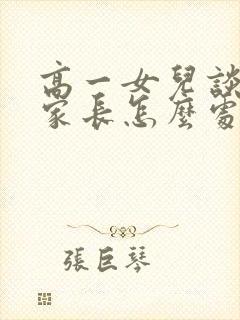 高一女兒談
家長怎麼處
張巨琴